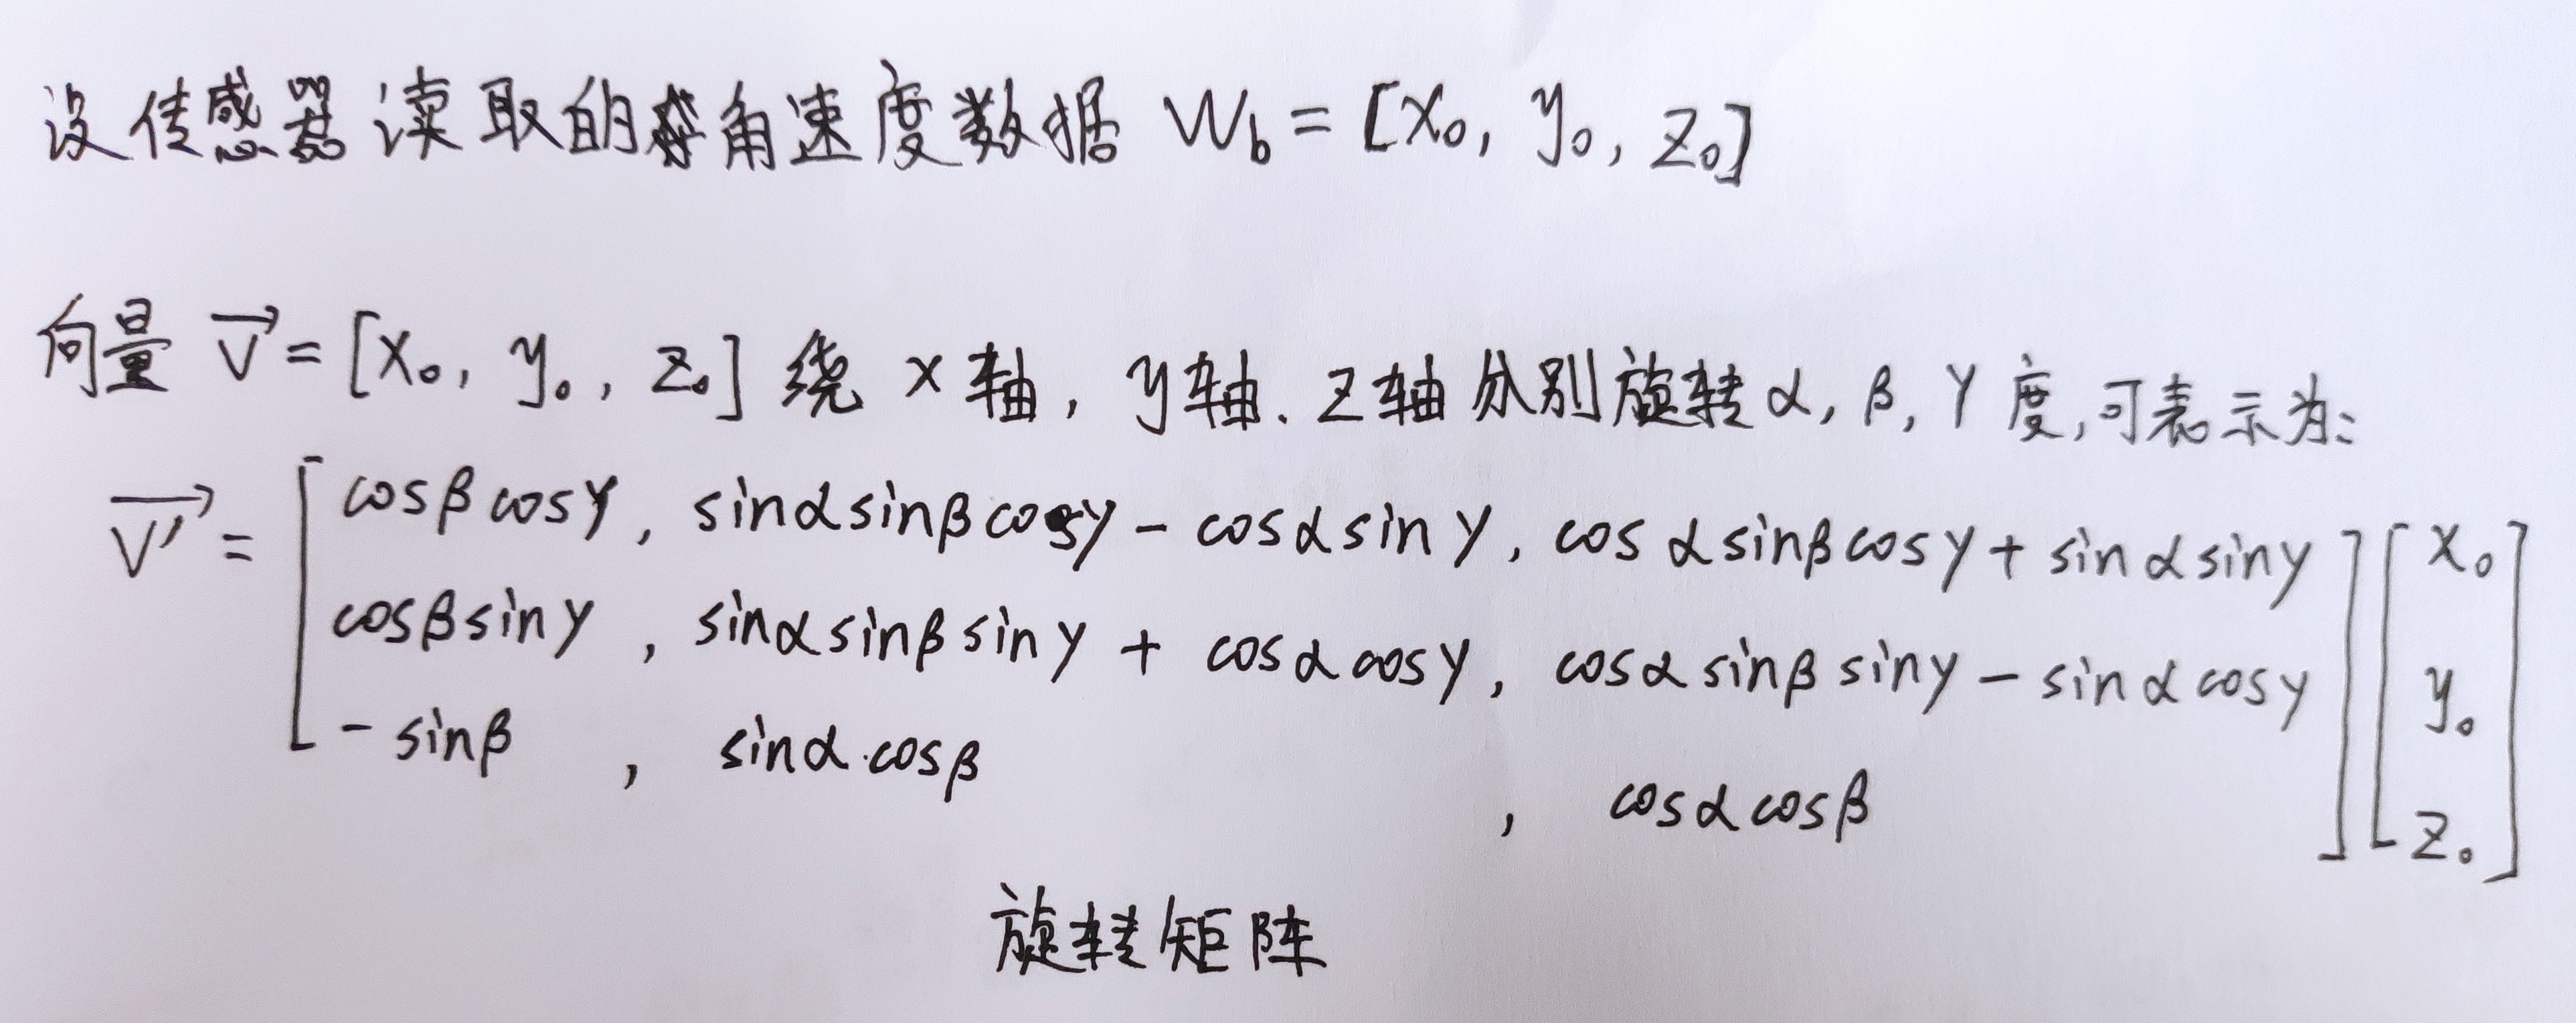 设传感器读取的角速度数据 Wb = [x₀, y₀, z₀]
向量 V⃗ = [x₀, y₀, z₀] 绕 x 轴, y轴. z轴分别旋转α, β, γ 度,可表示为:
V⃗′ = [cosβcosγ, sinαsinβcosγ - cosαsinγ, cosαsinβcosγ + sinαsinγ] [x₀]
[cosβsinγ, sinαsinβsinγ + cosαcosγ, cosαsinβsinγ - sinαcosγ] [y₀]
[-sinβ, sinα·cosβ, cosαcosβ] [z₀]
旋转矩阵